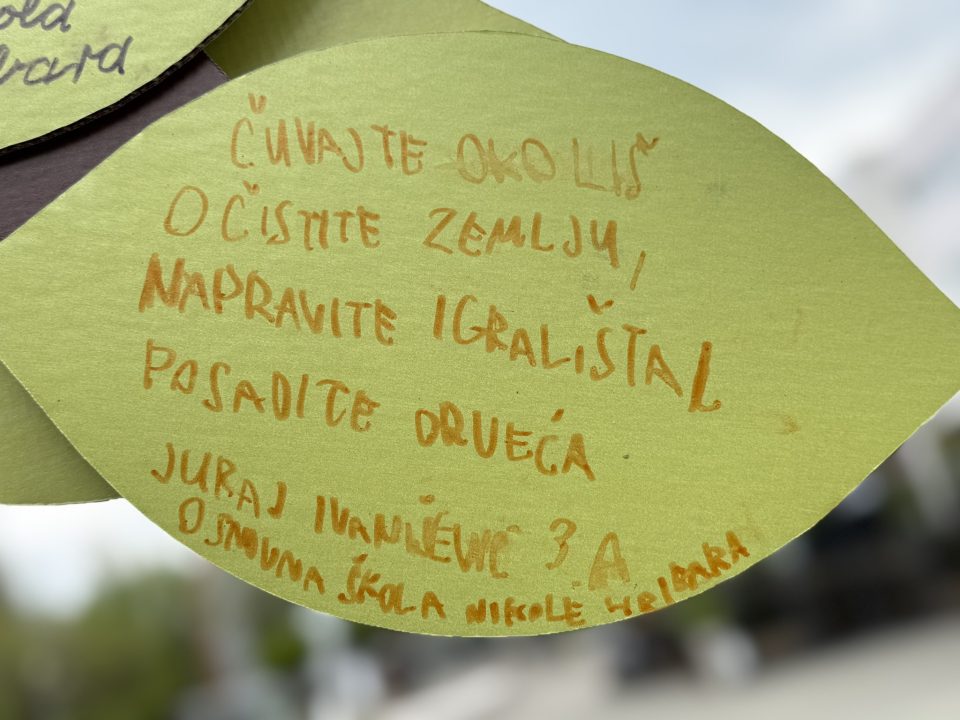 old
ČUVAJTE OKOLIŠ
OČISTITE ZEMLJU,
NAPRAVITE IGRALIŠTA L
POSADITE DRVEĆA
JURAJ 3.A
OSNOVNA ŠKOLA NIKOLE HRIBARA